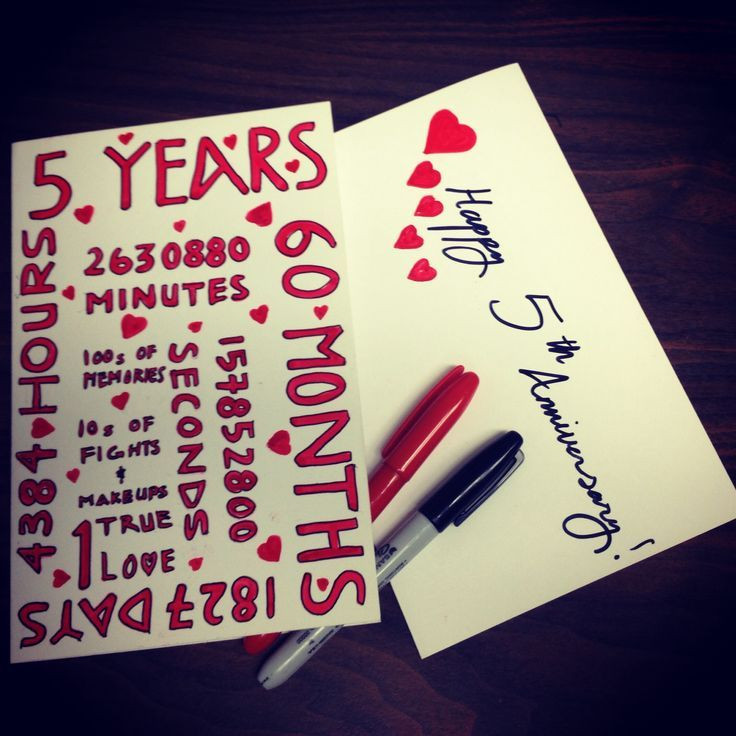 5 YEARS
60 MONTHS
1827 DAYS
4384 HOURS
2630880
MINUTES
157852800
SECONDS
100s OF
MEMORIES
10s OF
FIGHTS
&
MAKEUPS
1 TRUE
LOVE
Happy 5th Anniversary!